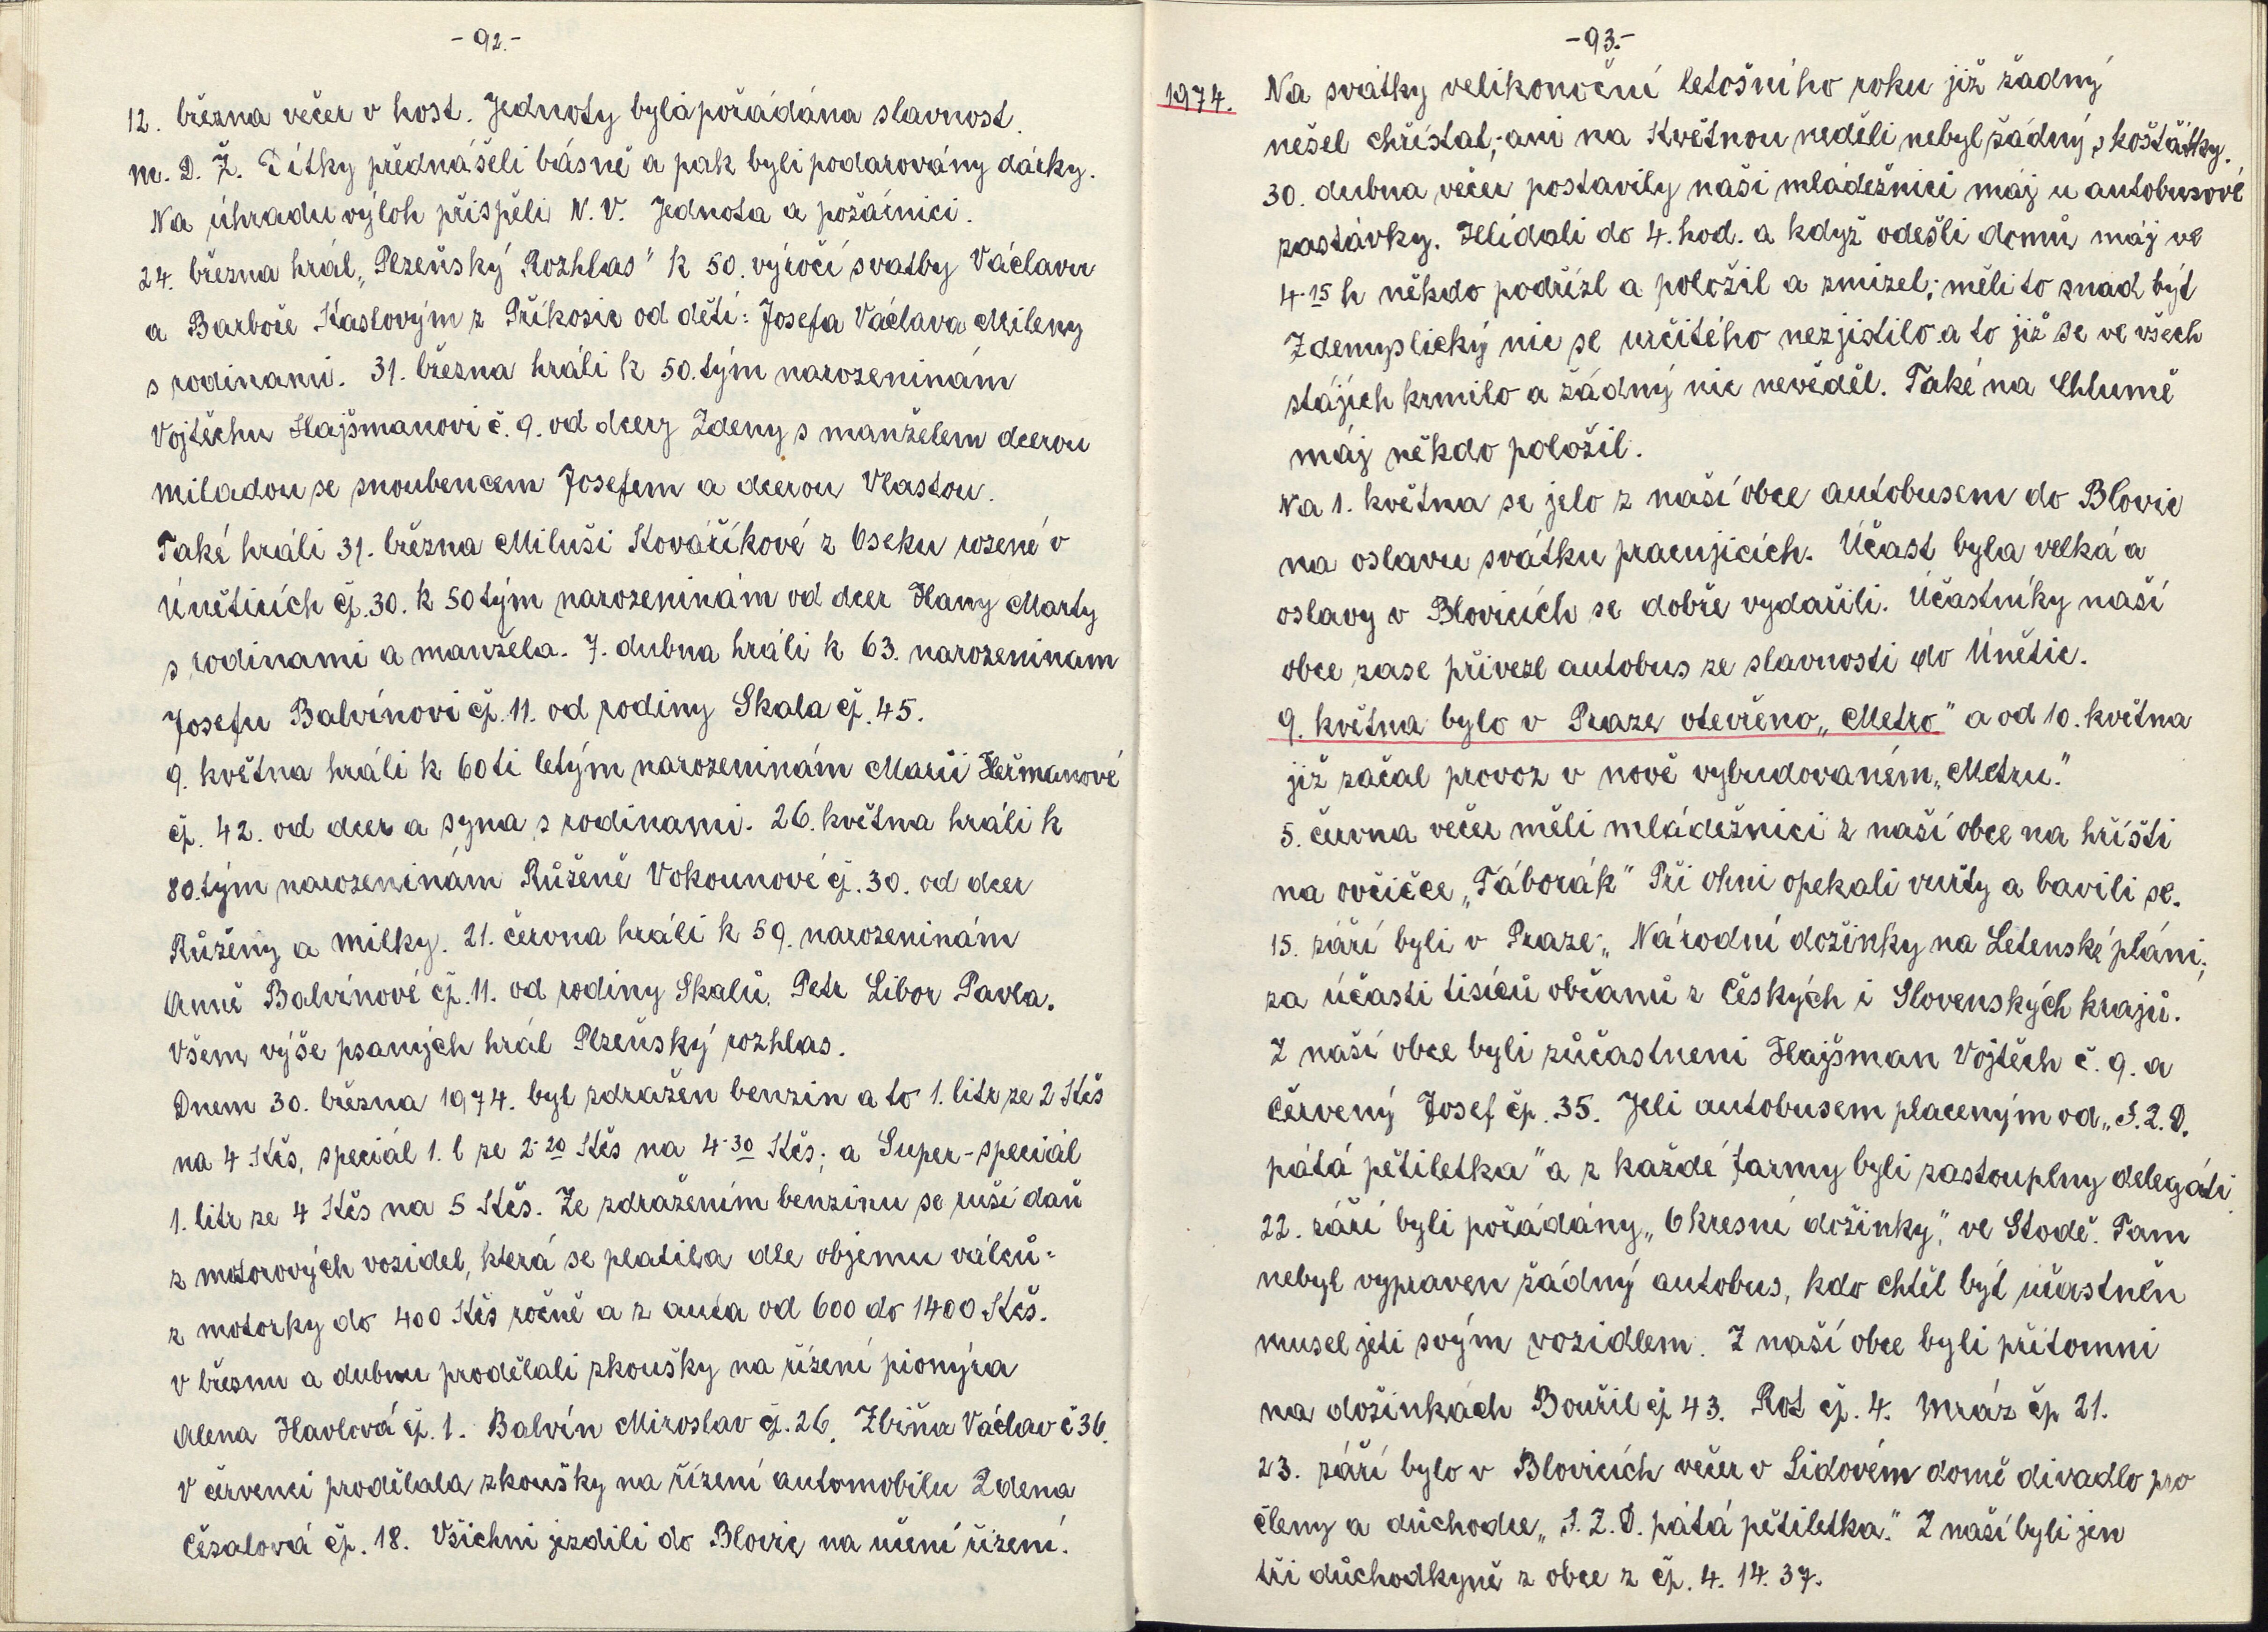 - 92. -
12. března večer v host. Jednoty byla pořádána slavnost.
m. D. Ž. Dítky přednášeli básně a pak byli podarovány dárky.
Na úhradu výloh přispěli N. V. Jednota a požárníci.
24. března hrál „Plzeňský Rozhlas" k 50. výročí svatby Václavu
a Barboře Kaslovým z Příkosic od dětí: Josefa Václava Mileny
s rodinami. 31. března hráli k 50.tým narozeninám
Vojtěchu Hajšmanovi č. 9. od dcery Zdeny s manželem dcerou
Miladou se snoubencem Josefem a dcerou Vlastou.
Také hráli 31. března Miluši Kováříkové z Oseku rozené v
Úněticích čp. 30. k 50tým narozeninám od dcer Hany Marty
s rodinami a manžela. 7. dubna hráli k 63. narozeninam
Josefu Balvínovi čp. 11. od rodiny Skala čp. 45.
9. května hráli k 60ti letým narozeninám Marii Heřmanové
čp. 42. od dcer a syna s rodinami. 26. května hráli k
80.tým narozeninám Růženě Vokounové čp. 30. od dcer
Růženy a Milky. 21. června hráli k 59. narozeninám
Anně Balvínové čp. 11. od rodiny Skalů, Petr Libor Pavla.
Všem výše psaných hrál Plzeňský rozhlas.
Dnem 30. března 1974. byl zdražen benzin a to 1. litr ze 2 Kčs
na 4 Kčs, speciál 1. l ze 2·20 Kčs na 4·30 Kčs; a Super-speciál
1. litr ze 4 Kčs na 5 Kčs. Ze zdražením benzinu se ruší daň
z motorových vozidel, která se platila dle objemu válců-
z motorky do 400 Kčs ročně a z auta od 600 do 1400 Kčs.
V březnu a dubnu prodělali zkoušky na řízení pionýra
Alena Havlová čp. 1. Balvín Miroslav čp. 26. Zbiňa Václav č 36.
V červenci prodělala zkoušky na řízení automobilu Zdena
Čěsalová čp. 18. Všichni jezdili do Blovic na učení řízení.
- 93. -
1974.
Na svátky velikonoční letošního roku již žadný
nešel chřístat; ani na Květnou neděli nebyl žádný s koštátky.
30. dubna večer postavily naši mládežníci máj u autobusové
zastávky. Hlídali do 4. hod. a když odešli domů máj ve
4·15 h někdo podřízl a položil a zmizel; měli to snad být
Zdemyslický nic se určitého nezjistilo a to již se ve všech
stájích krmilo a žádný nic nevěděl. Také na Chlumě
máj někdo položil.
Na 1. května se jelo z naší obce autobusem do Blovic
na oslavu svátku pracujících. Účast byla velká a
oslavy v Blovicích se dobře vydařili. Účastníky naší
obce zase přivezl autobus ze slavnosti do Únětic.
9. května bylo v Praze otevřeno „Metro" a od 10. května
již začal provoz v nově vybudovaném „Metru."
5. června večer měli mládežníci z naší obce na hřišti
na ovčičce „Táborák" Při ohni opekali vuřty a bavili se.
15. září byli v Praze „Národní dožinky na Letenské pláni;
za účasti tisíců občanů z Českých i Slovenských krajů.
Z naší obce byli zůčastneni Hajšman Vojtěch č. 9. a
Červený Josef čp. 35. Jeli autobusem placeným od „J. Z. D.
pátá pětiletka" a z každé farmy byli zastouplny delegáti.
22. září byli pořádány „Okresní dožinky," ve Stodě. Tam
nebyl vypraven žádný autobus, kdo chtěl být účastněn
musel jeti svým vozidlem. Z naší obce byli přítomni
na dožinkách Bouřil čp 43. Rot čp. 4. Mráz čp 21.
23. září bylo v Blovicích večer v Lidovém domě divadlo pro
členy a důchodce „J. Z. D. pátá pětiletka." Z naší byli jen
tři důchodkyně z obce z čp. 4. 14. 37.